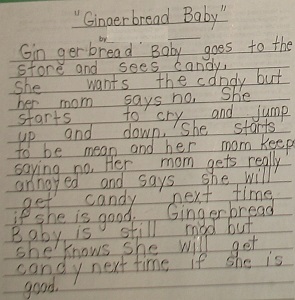 "Gingerbread Baby"
by
Gin gerbread Baby goes to the
store and sees candy.
She wants the candy but
her mom says no. She
starts to cry and jump
up and down. She starts
to be mean and her mom keep
saying no. Her mom gets really
annoyed and says she will
get candy next time
if she is good. Gingerbread
Baby is still mad but
she knows she will get
candy next time if she is
good.